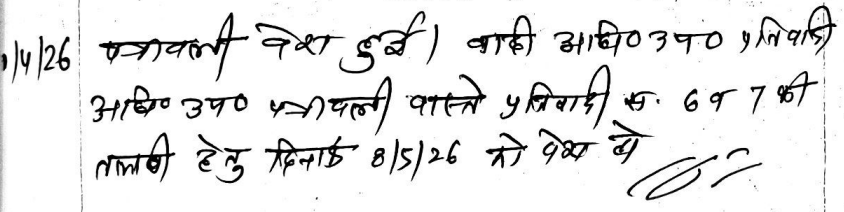 1/4/26 पत्रावली पेश हुई। वादी अधि० उप० प्रतिवादी
अधि० उप० पत्रावली वास्ते प्रतिवादी सं. 6 व 7 की
तलबी हेतु दिनांक 8/5/26 को पेश हो